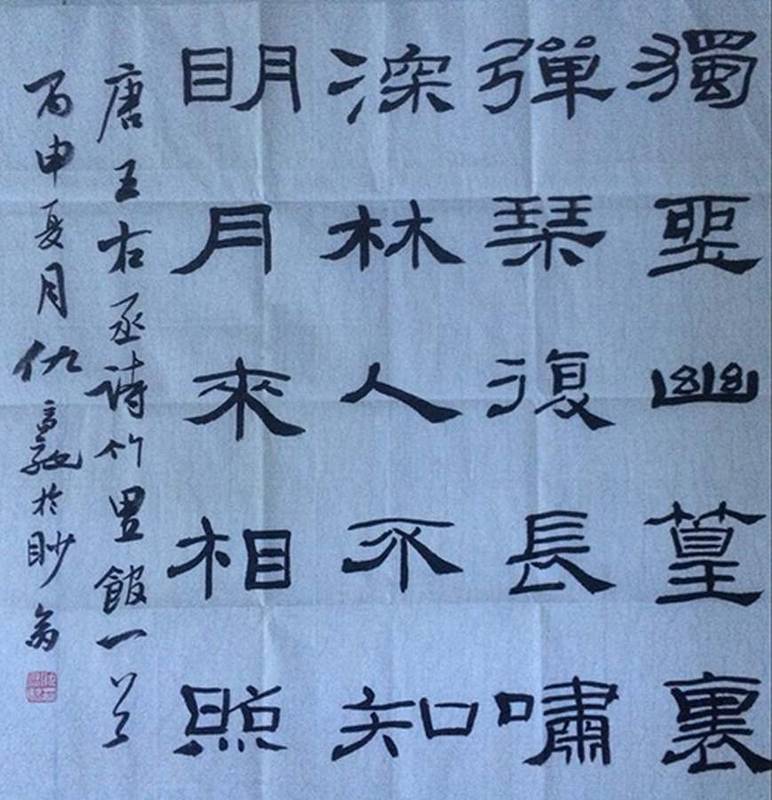 獨坐幽篁裏
彈琴復長嘯
深林人不知
明月來相照
唐王右丞詩竹里館一首
丙申夏月仇於